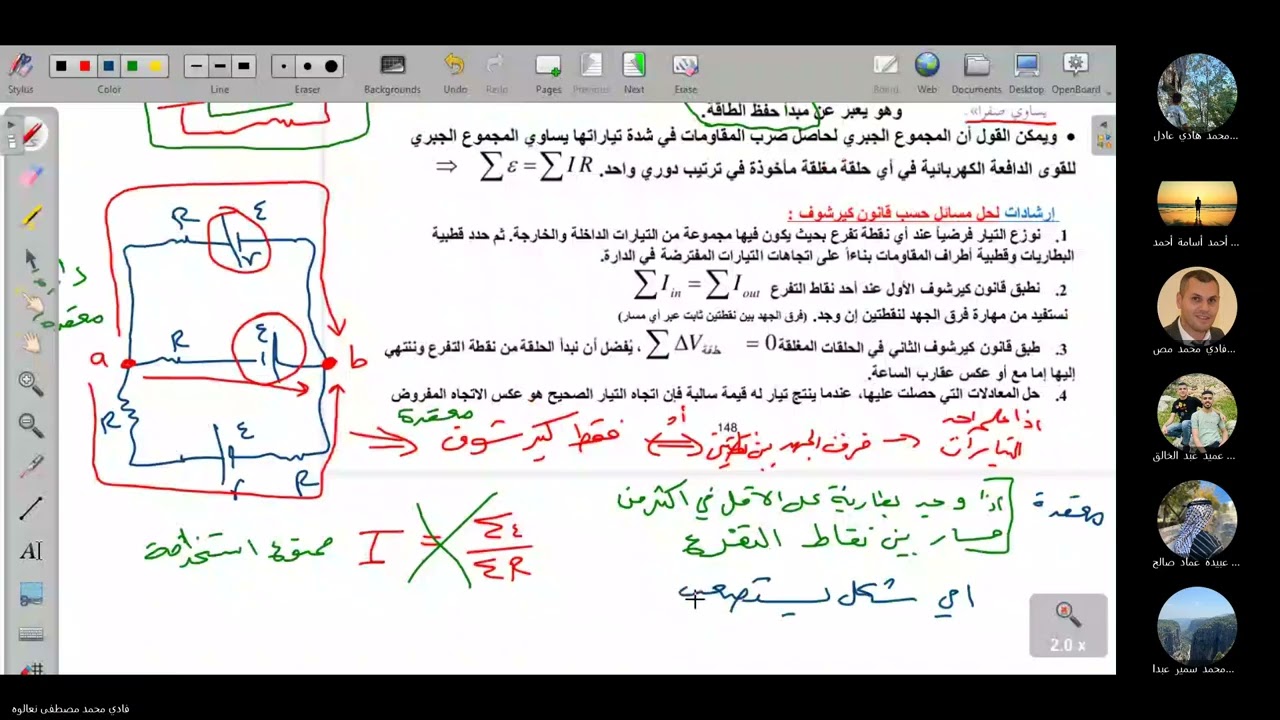 Stylus
Color
Line
Eraser
Backgrounds
Undo
Redo
Pages
Previous
Next
Erase
Board
Web
Documents
Desktop
OpenBoard
يساوي صفراً». وهو يعبر عن مبدأ حفظ الطاقة.
• ويمكن القول أن المجموع الجبري لحاصل ضرب المقاومات في شدة تياراتها يساوي المجموع الجبري
للقوى الدافعة الكهربائية في أي حلقة مغلقة مأخوذة في ترتيب دوري واحد. ∑ε = ∑IR ⇒
إرشادات لحل مسائل حسب قانون كيرشوف :
1. نوزع التيار فرضياً عند أي نقطة تفرع بحيث يكون فيها مجموعة من التيارات الداخلة والخارجة. ثم حدد قطبية
البطاريات وقطبية أطراف المقاومات بناءاً على اتجاهات التيارات المفترضة في الدارة.
2. نطبق قانون كيرشوف الأول عند أحد نقاط التفرع ∑I in = ∑I out
نستفيد من مهارة فرق الجهد لنقطتين إن وجد. (فرق الجهد بين نقطتين ثابت عبر أي مسار)
3. طبق قانون كيرشوف الثاني في الحلقات المغلقة ∑ΔV حلقة = 0 ، يُفضل أن نبدأ الحلقة من نقطة التفرع وننتهي
إليها إما مع أو عكس عقارب الساعة.
4. حل المعادلات التي حصلت عليها، عندما ينتج تيار له قيمة سالبة فإن اتجاه التيار الصحيح هو عكس الاتجاه المفروض
148
R ε
r
a R ε b
R ε
r R
معقدة
اذا علم احد
التيارات ← فرق الجهد بين نقطتين
أو
معقدة
فقط كيرشوف
معقدة
اذا وجد بطارية على الاقل في اكثر من
مسار بين نقاط التفرع
I = ∑ε / ∑R
ممنوع استخدامه
اي شكل يستصعب
2.0 x
محمد هادي عادل...
أحمد أسامة أحمد ...
فادي محمد مص...
عميد عبد الخالق ...
عبيدة عماد صالح ...
محمد سمير عبدا...
فادي محمد مصطفى نعالوه